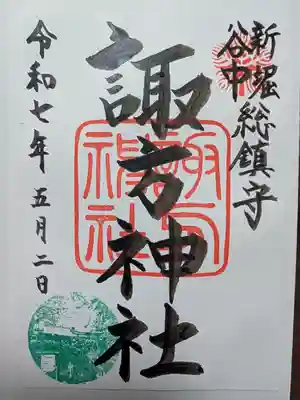 新堀
谷中
総鎮守
諏方神社
令和七年五月二日
諏方神社